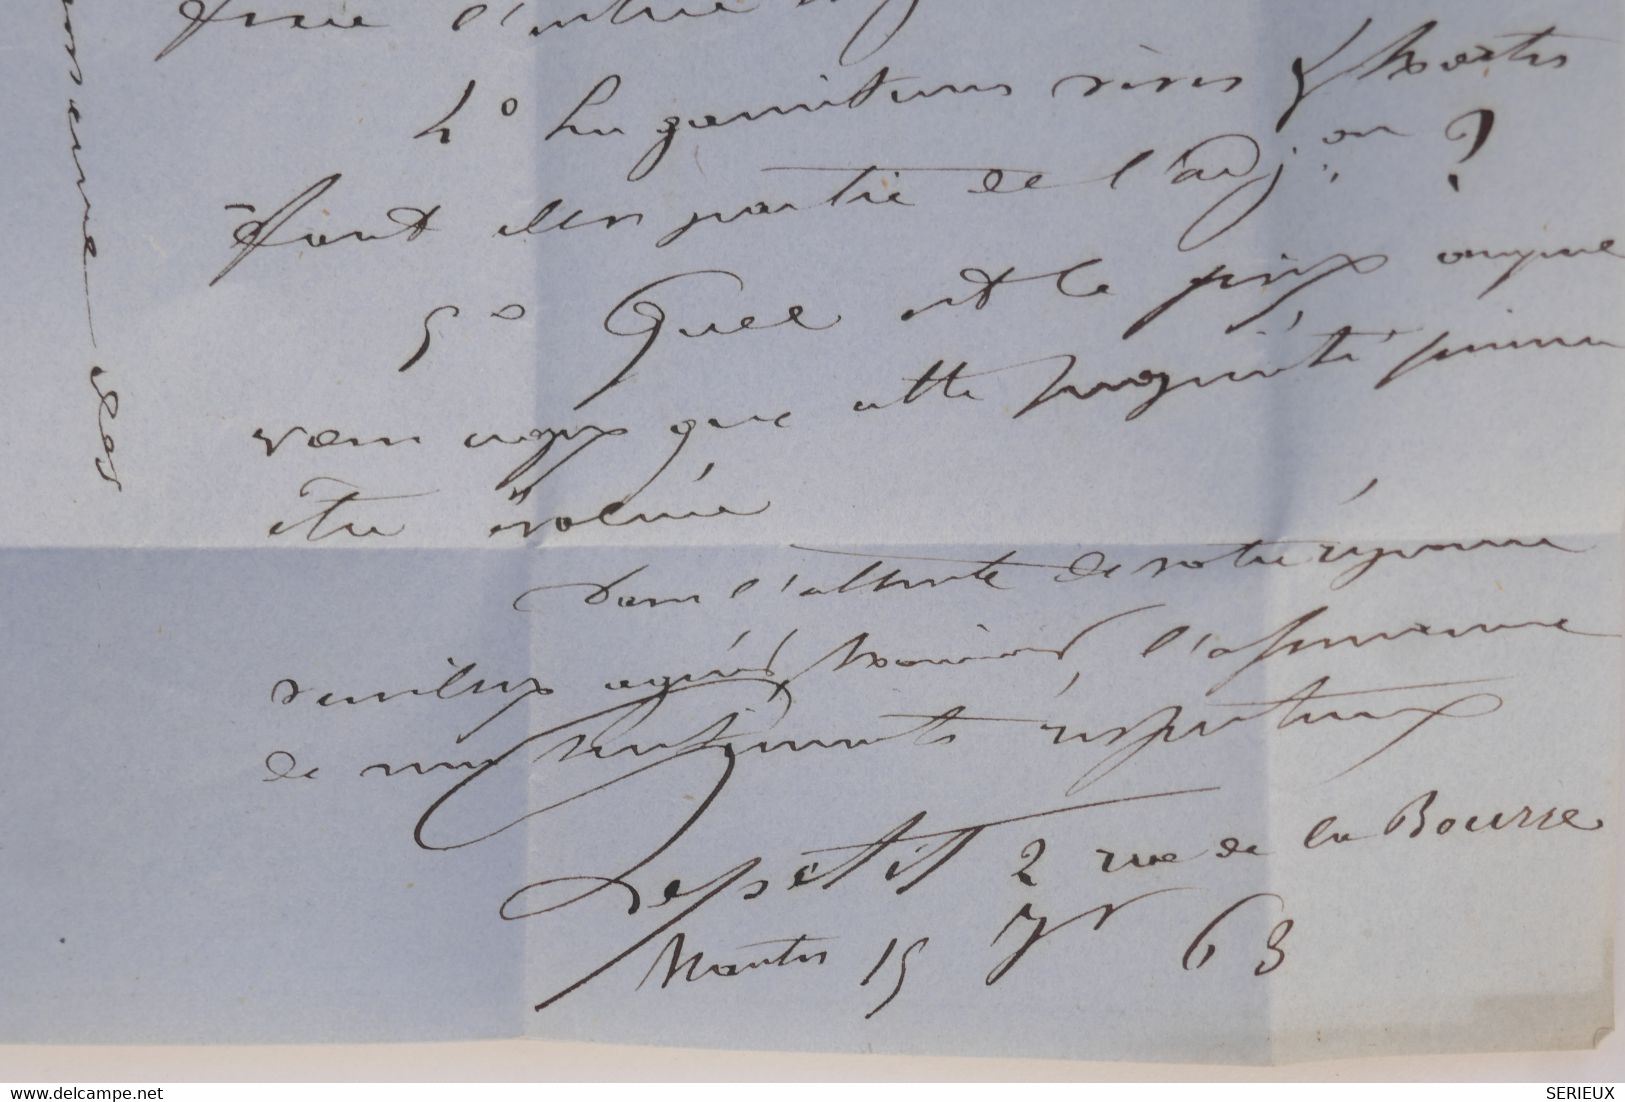 4° Les garnitures vives & mortes
font elles partie de l'adj.on ?
5° Quel est le prix auquel
vous croyez que cette propriété puisse
être évaluée
Dans l'attente de votre réponse
veuillez agréer, Monsieur, l'assurance
de mes sentiments respectueux
Lepetit 2 rue de la Bourse
Nantes 15 7br 63
des
delcampe.net
SERIEUX